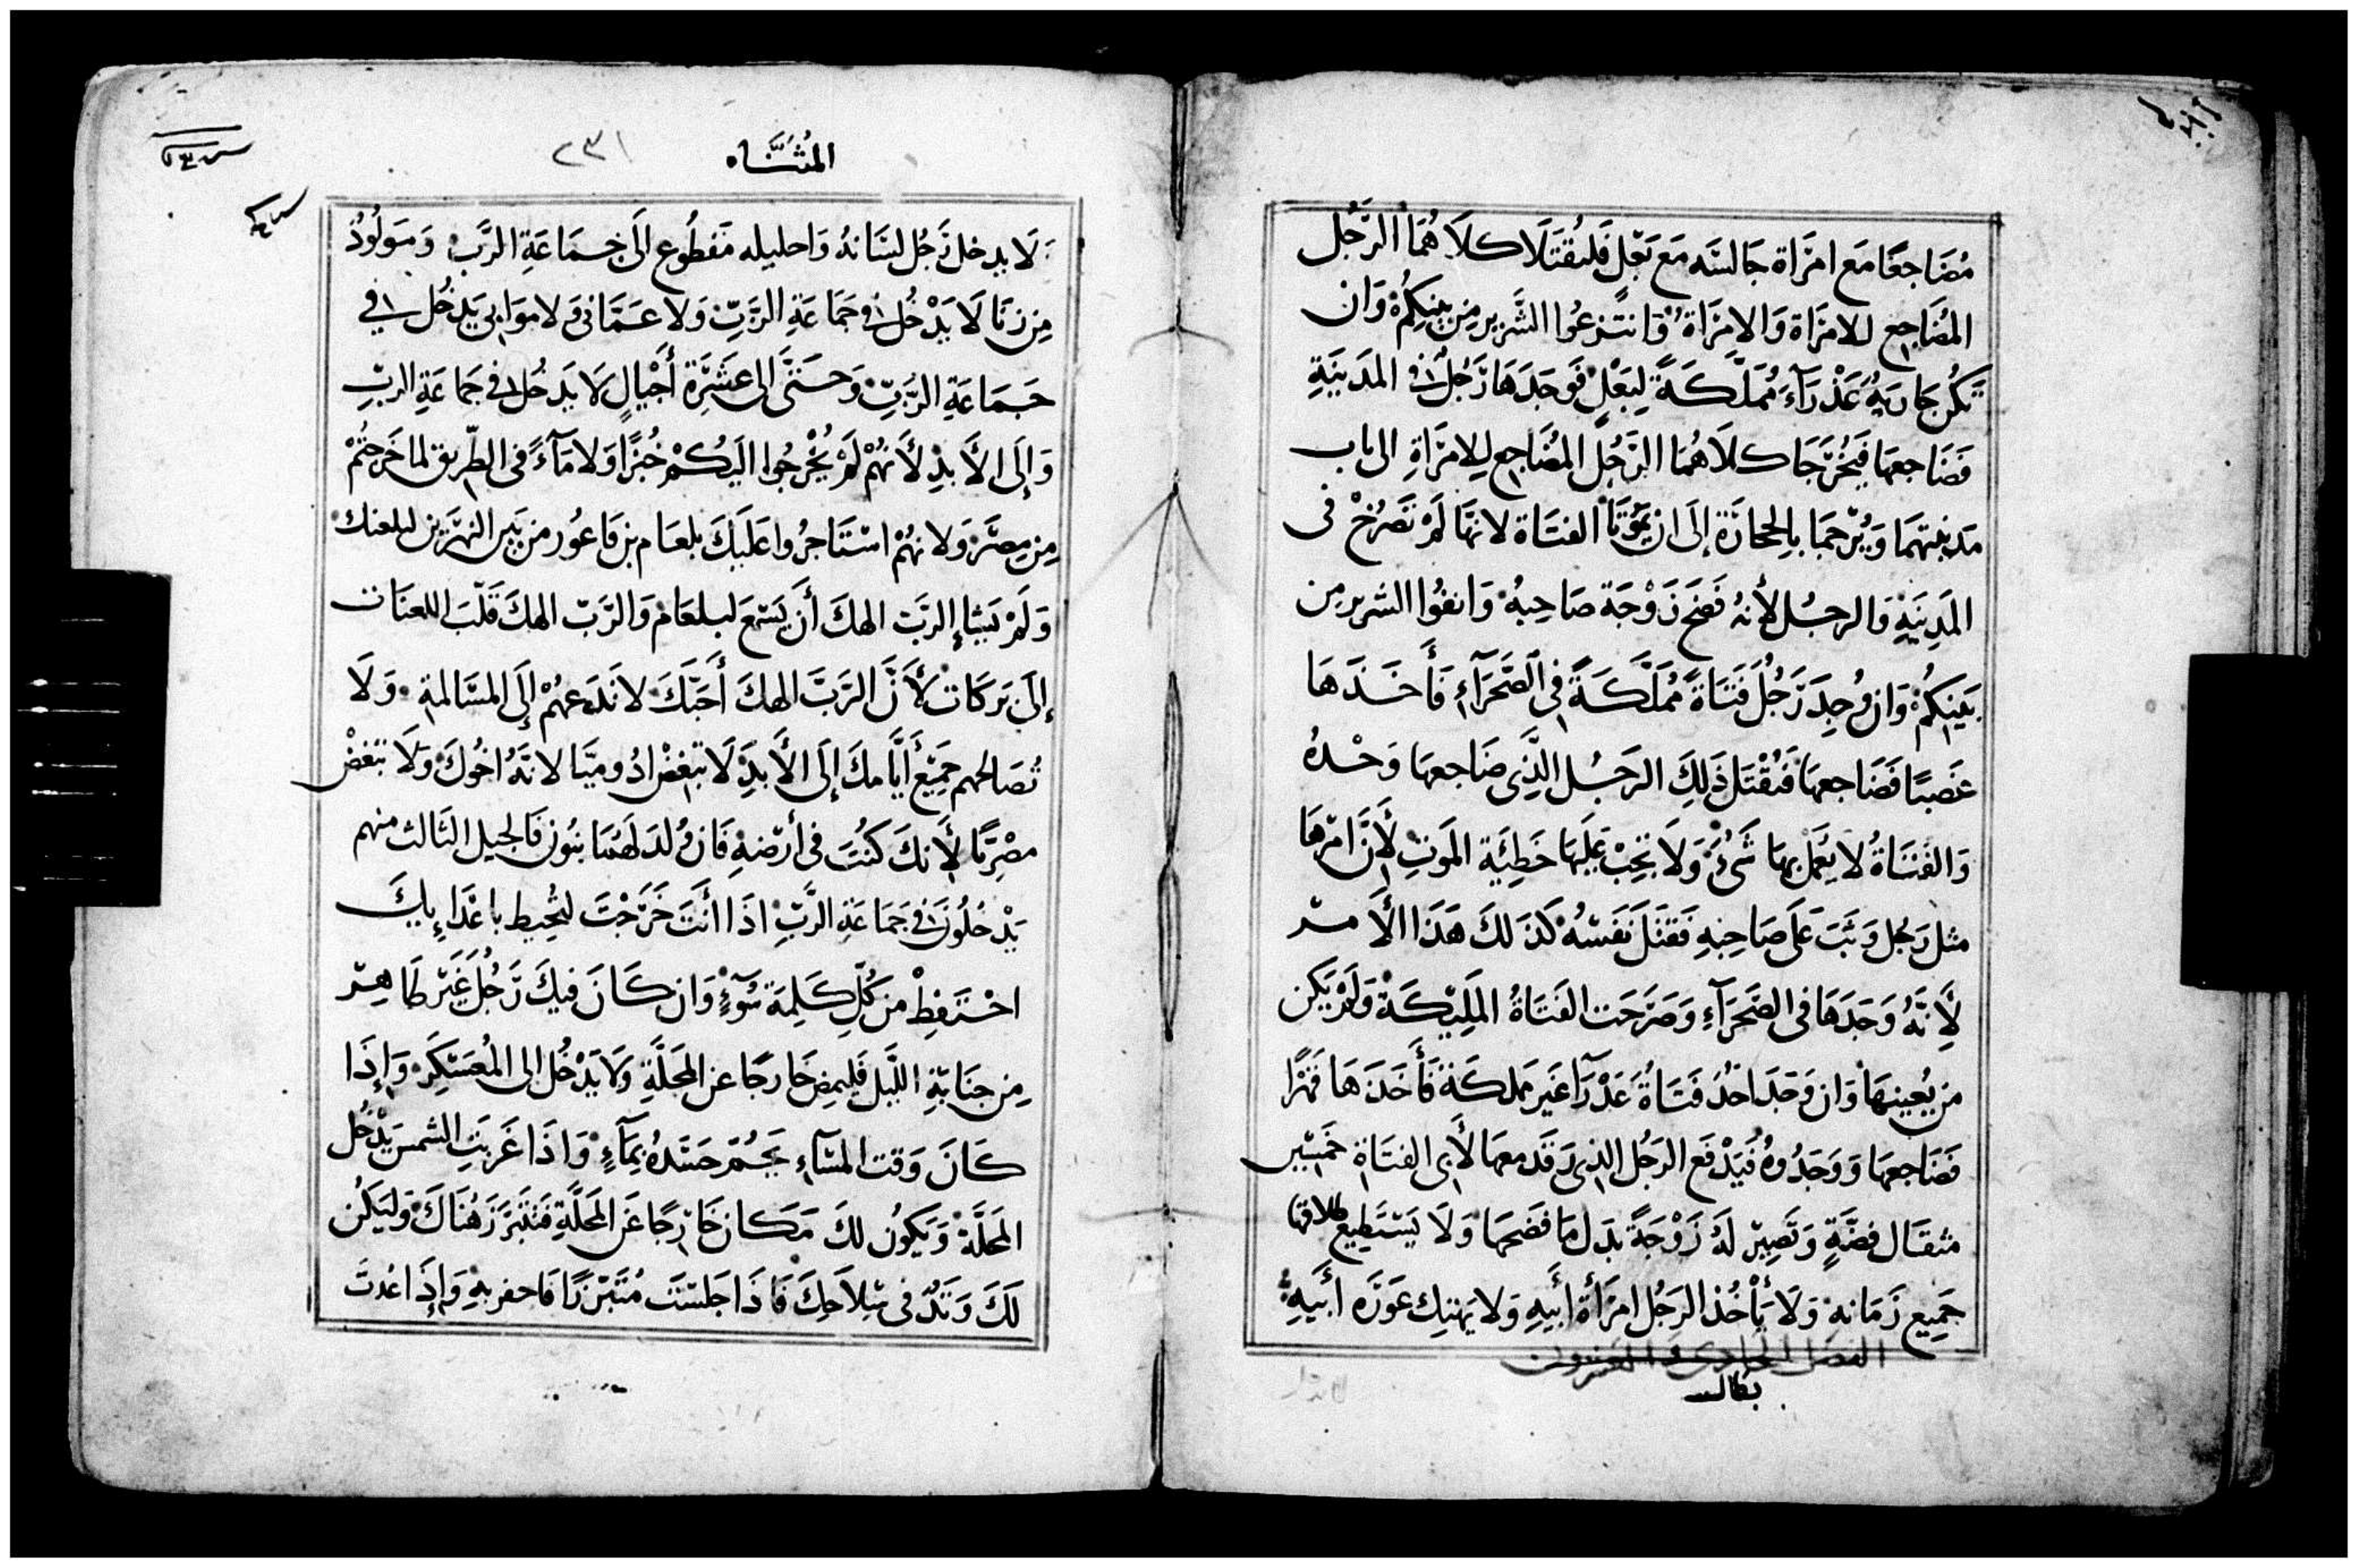 مُضَاجعًا مَع امرَاة جَالسَه مَع بَعْل فَليُقتَلَا كلَاهُمَا الرَّجُل
المُضَاجِع للامرَاة وَالامرَاة وَانتَزعُوا الشَّرير مِن بينِكُمْ وَان
تكُن جَاريَةٌ عَذْرَآءَ مُمَلَّكَةً لِبَعْلٍ فَوجَدَهَا رَجُلٌ في المَدِينَةِ
فَضَاجعهَا فيُخْرَجَا كلَاهُمَا الرَّجُل المُضَاجِع لِلامرَاةِ الى باب
مَدينتهمَا وَيُرْجمَا بالِحجَارَة إلَى ان يمُوتَا الفتَاة لانهَا لَمْ تَصْرُخْ فى
المَدِينَةِ وَالرجُل لأنهُ فَضحَ زَوْجَة صَاحِبِهُ وَانفُوا الشرير مِن
بَينِكُمْ وَان وُجِدَ رَجُلٌ فَتَاةً مُمَلَّكَةً فِى الصَّحرَآءِ فَأَخَذَهَا
غَصبًا فَضَاجعهَا فَيُقْتَل ذَلِكَ الرَجُل الذِى ضَاجعهَا وَحْدهُ
وَالفَتَاةُ لا يعْمَل بهَا شَىْءٌ وَلَا تجِبْ عَلَيهَا خَطِئَةِ المَوتِ لأَنَّ امْرهَا
مثل رَجُل وَثَبَ عَلَى صَاحِبِهِ فَقتَلَ نَفسَهُ كَذلكَ هَذَا الأَمر
لأَنَّهُ وَجَدَهَا فى الصَّحرَآءِ وَصَرَخت الفَتَاةُ المَلِيكَة وَلَمْ يَكن
مَن يُعِينهَا وَان وَجَدَ احَدُ فَتَاةً عَذْرَآ غَير مملكَة فَأَخَذَهَا قَهْرًا
فَضَاجعهَا وَوَجَدُوهُ فَيَدْفَع الرَجُل الذِى رَقَد معهَا لأَبِى الفتَاةِ خَمْسِين
مثقَال فضَّةٍ وَتَصِيرْ لَهُ زَوْجَةً بدَل مَا فضَحهَا وَلَا يَسْتَطِيع طلاقها
جَمِيع زَمَانهِ وَلَا يَأْخُذ الرَجُل امرَأة أَبيهِ وَلا يَهتِك عَورَه أَبيهِ
الفصل الحادى والعشرون
المُثنَّاه
٢٣١
لَا يدخل رَجُل لسَانهُ وَاحليله مَقطُوع الَى جَمَاعَةِ الرَّبّ وَمَولُودٌ
مِن زنَا لَا يَدْخُل فى جَمَاعَةِ الرَّبِّ وَلا عَمَّانى وَلا موَابى يَدخُل فى
جَمَاعَةِ الرَّبِّ وَحَتَّى الى عَشَرَة أَجْيَالٍ لَا يَدخُل فى جَمَاعَةِ الربِّ
وَإلَى الأَبدِ لأَنهُمْ لَمْ يُخْرِجُوا اليَكُمْ خُبْزًا وَلا مَآءً فى الطَّرِيق لما خَرجتُمْ
مِن مِصْرَ وَلانهُمْ اسْتَاجرُوا عَلَيكَ بلعَام بن فَاعُور من بَين النهْرَين ليلعنك
وَلَمْ يَشَاءِ الرَّبّ الهكَ أَن يَسْمَع لبلعَامْ وَالرَّبّ الهكَ قَلَبَ اللعنَات
إلَى بَركَات لأَنَّ الرَّبَّ الهكَ أَحَبَّكَ لا تَدعهُمْ إلَى المسَالمة وَلَا
تُصَالحهم جَمِيْع أَيَّامكَ إلَى الأَبدِ لَا تبْغِضْ ادُوميًّا لانَّهُ اخُوكَ وَلَا تبْغضْ
مصْريًّا لأَنكَ كنْتَ فى أَرْضهِ فَان وُلدَ لَهُمَا بنُون فَالجيل الثالث منهم
يَدْخُلُونَ فى جَمَاعَةِ الرَّبِّ اذَا أَنتَ خَرَجْتَ لتُحِيط باعْدَايِكَ
احْتَفِظْ مِن كُلِّ كَلِمَة سُوَءٍ وَان كَانَ فيكَ رَجُل غَيْر طَاهِر
مِن جنَابَةِ اللَّيل فَليمضِ خَارجًا عن المَحَلَّةِ وَلا يَدْخُل الى المُعَسْكَر وَإذَا
كَانَ وَقت المسَآءِ يحُمّ جَسَدهُ بمَآءٍ وَاذَا غَربَتِ الشمس يَدْخُل
المَحَلَّة وَيَكُون لكَ مَكَان خَارجًا عَن المَحَلَّةِ فَتَتَبَرَّزَ هُنَاكَ وَليَكُن
لَكَ وَتَدٌ فى سِلَاحِكَ فَاذَا جَلسْتَ مُتَبَرّزًا فَاحفر بهِ وَإذَا عُدتَ